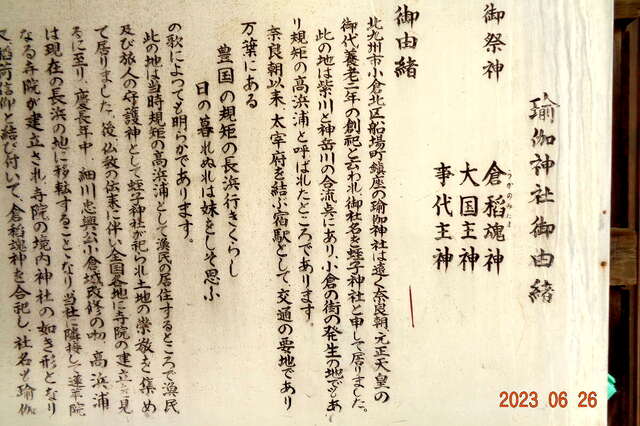 瑜伽神社御由緒
御祭神
倉稻魂神
うかのみたま
大国主神
事代主神
御由緒
北九州市小倉北区船場町鎮座の瑜伽神社は遠く奈良朝、元正天皇の
御代養老二年の創祀と云われ御社名を蛭子神社と申して居りました。
此の地は紫川と神岳川の合流点にあり、小倉の街の発生の地でもあ
り規矩の高浜浦と呼ばれたところであります。
奈良朝以来、太宰府を結ぶ宿駅として、交通の要地であり
万葉にある
豊国の規矩の長浜行きくらし
日の暮れぬれば妹をしぞ思ふ
の歌によっても明らかであります。
此の地は当時規矩の高浜浦として漁民の居住するところで漁民
及び旅人の守護神として蛭子神社が祀られ土地の崇敬を集め
て居りました。後、仏教の伝来に伴い全国各地に寺院の建立を見
るに至り、慶長年中、細川忠興公小倉城改修の砌、高浜浦
は現在の長浜の地に移転することゝなり当社に隣接して蓮華院
なる寺院が建立され寺院の境内神社の如き形となり
稲荷信仰と結び付いて、倉稻魂神を合祀し、社名も瑜伽
2023 06 26